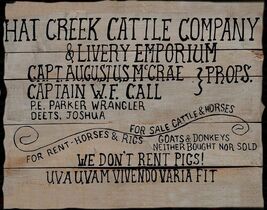 HAT CREEK CATTLE COMPANY
& LIVERY EMPORIUM
CAPT. AUGUSTUS McCRAE
CAPTAIN W.F. CALL } PROPS.
P.E. PARKER WRANGLER
DEETS, JOSHUA
FOR SALE CATTLE & HORSES
FOR RENT-HORSES & RIGS
GOATS & DONKEYS
NEITHER BOUGHT NOR SOLD
WE DON'T RENT PIGS!
UVA UVAM VIVENDO VARIA FIT